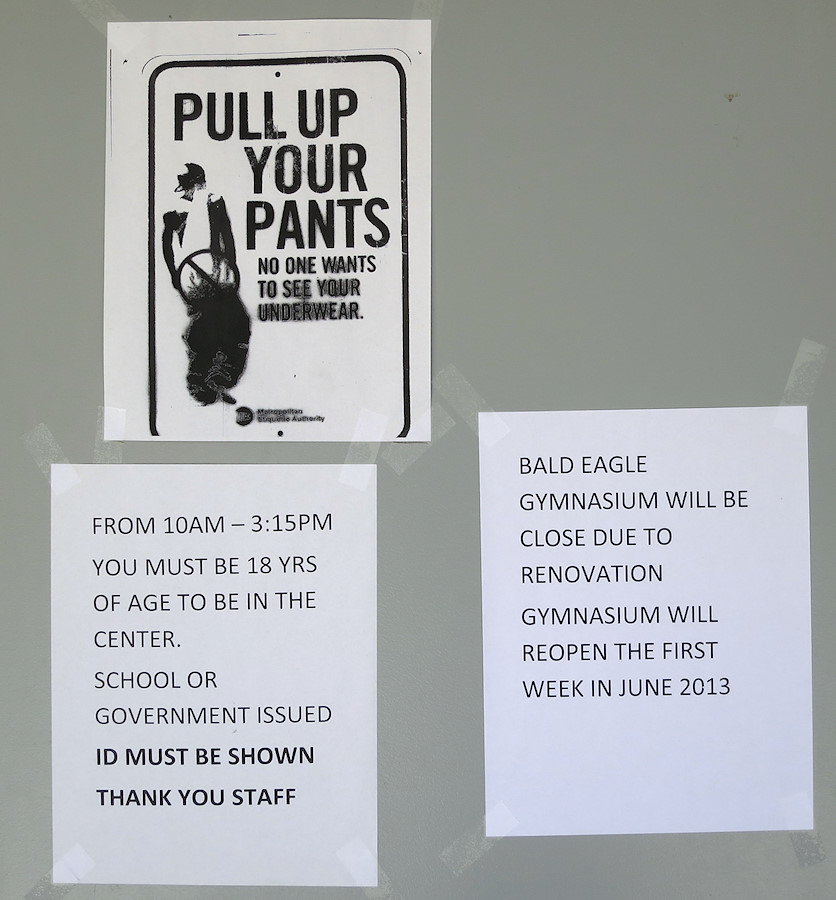 PULL UP
YOUR
PANTS
NO ONE WANTS
TO SEE YOUR
UNDERWEAR.
Metropolitan
Etiquette Authority
FROM 10AM – 3:15PM
YOU MUST BE 18 YRS
OF AGE TO BE IN THE
CENTER.
SCHOOL OR
GOVERNMENT ISSUED
ID MUST BE SHOWN
THANK YOU STAFF
BALD EAGLE
GYMNASIUM WILL BE
CLOSE DUE TO
RENOVATION
GYMNASIUM WILL
REOPEN THE FIRST
WEEK IN JUNE 2013